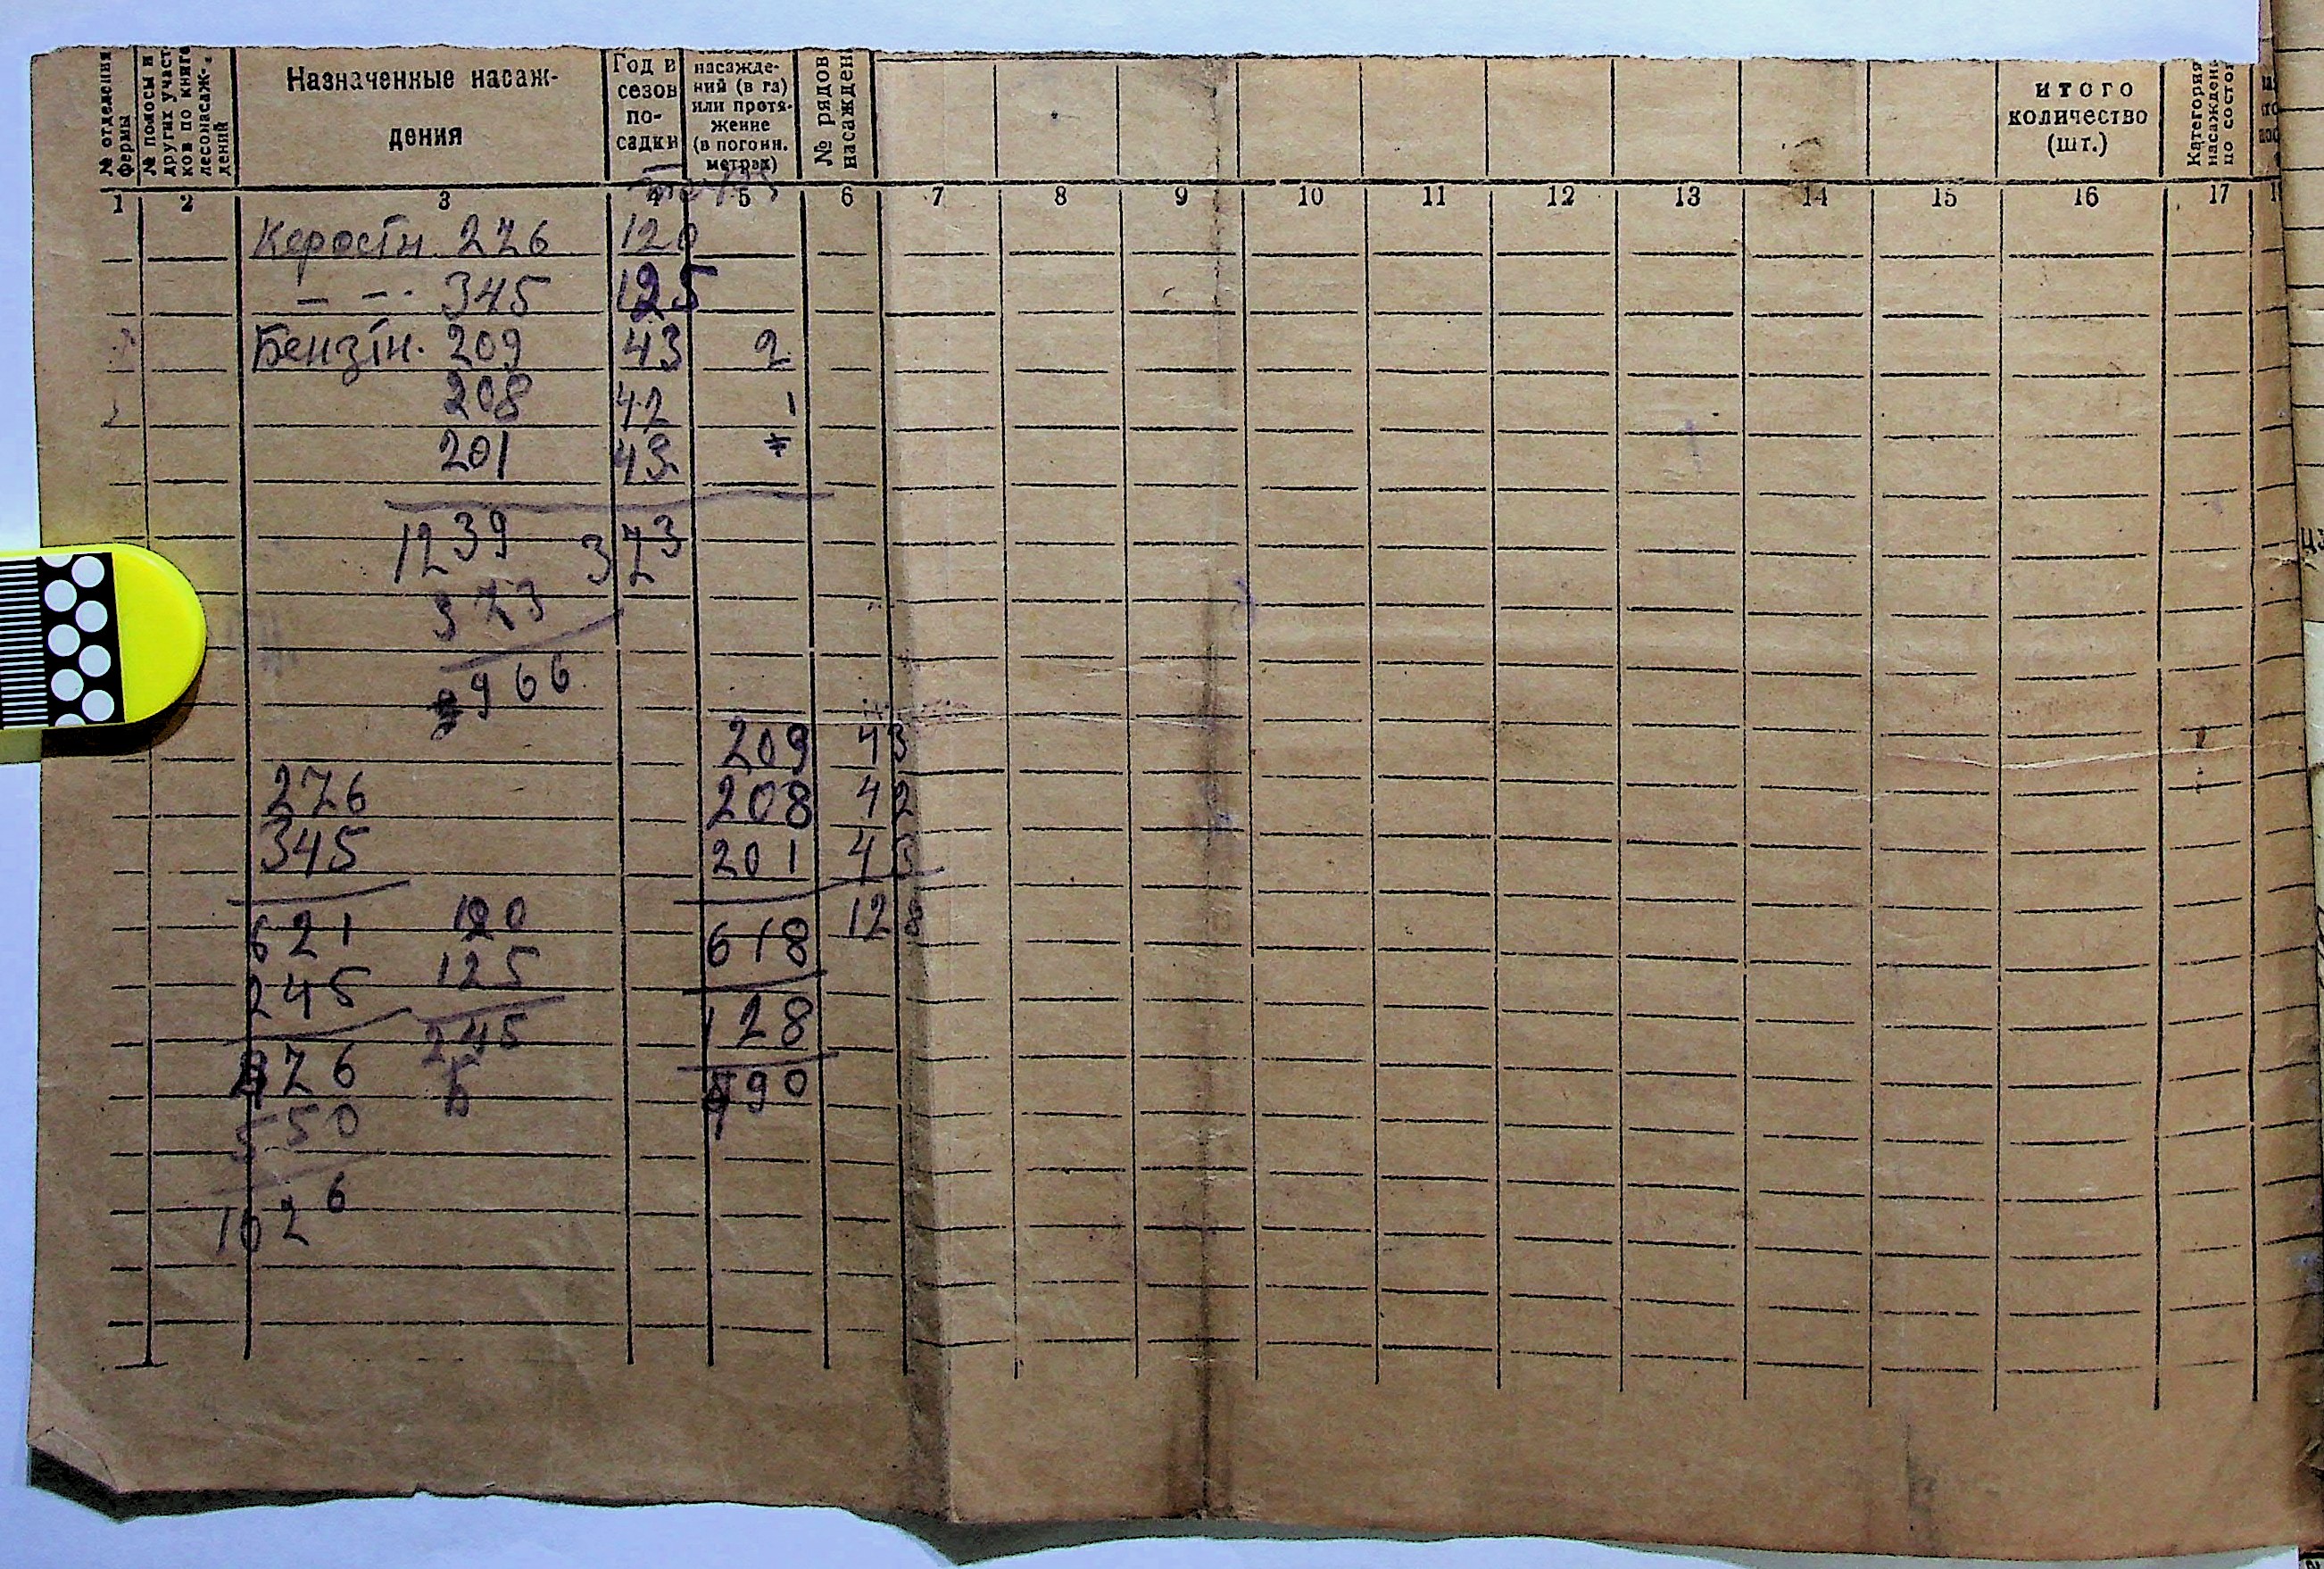 № отделения фермы
№ полосы и других участков по книге лесонасаждений
Назначенные насаж-
дения
Год и
сезон
по-
садки
насажде-
ний (в га)
или протя-
жение
(в погонн.
метрах)
№ рядов насажден
ИТОГО
количество
(шт.)
Категория насаждени по состоя
1 2 3 4 5 6 7 8 9 10 11 12 13 14 15 16 17
Керостн. 276 120
— —· 345 125
Бензін. 209 43 2
208 42 1
201 43
1239 373
373
966
209 43
276 208 42
345 201 43
621 120 618 128
245 125 128
245
376 490
550
1026